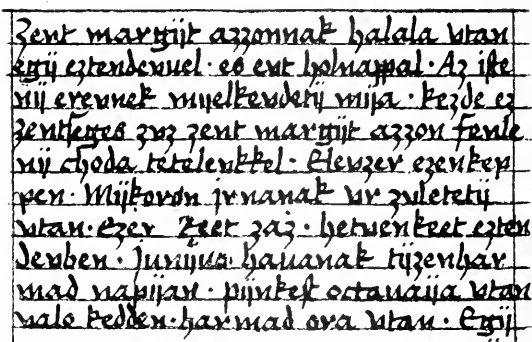 Zent margijt azzonnak halala vtan
egij eztendevuel · es evt holnappal · Az iste
nij erevnek mijelkevdetij mija · kezde ez
zentseges zvz zent margijt azzon fenle
nij choda tetelevkkel · Elevzer ezenkep
pen · Mijkoron jrnanak vr zvletetij
vtan · ezer keet zaz · hetuenkeet ezten
devben · junijus hauanak tijzenhar
mad napijan · pijnkest octauaija vtan
valo kedden · harmad ora vtan · Egij